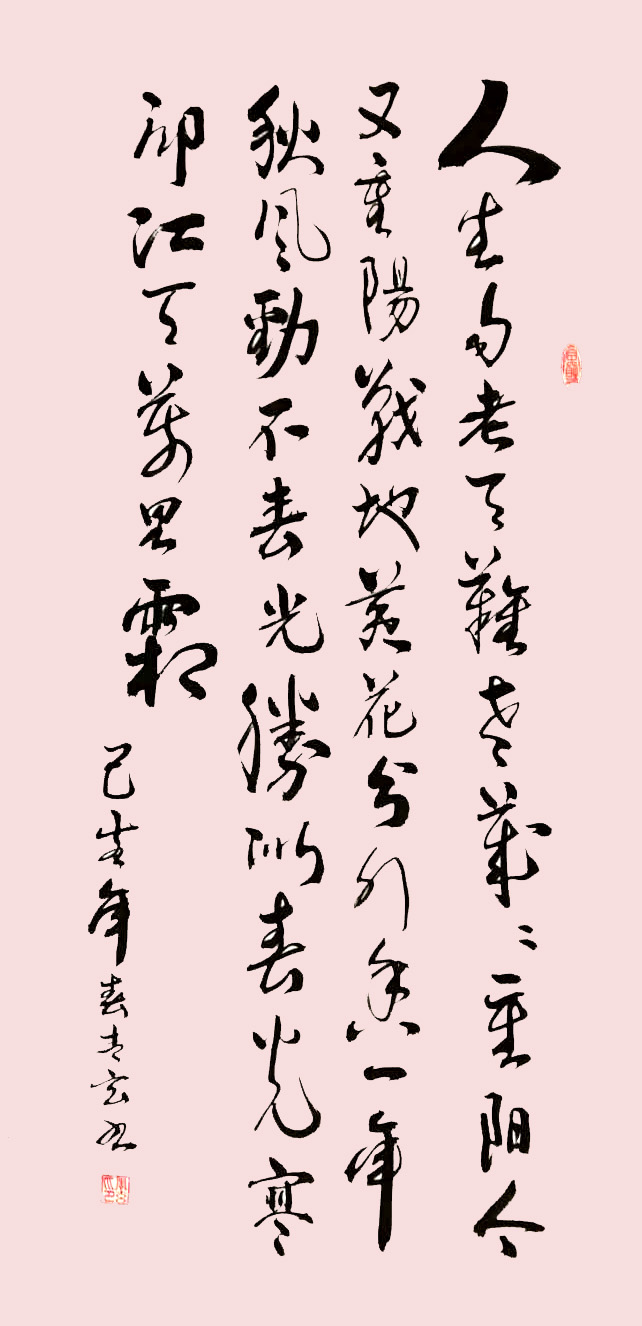 人生易老天難老歲〻重陽今
又重陽戰地黃花分外香一年
秋風勁不春光勝似春光寥
廓江天萬里霜
己亥年春